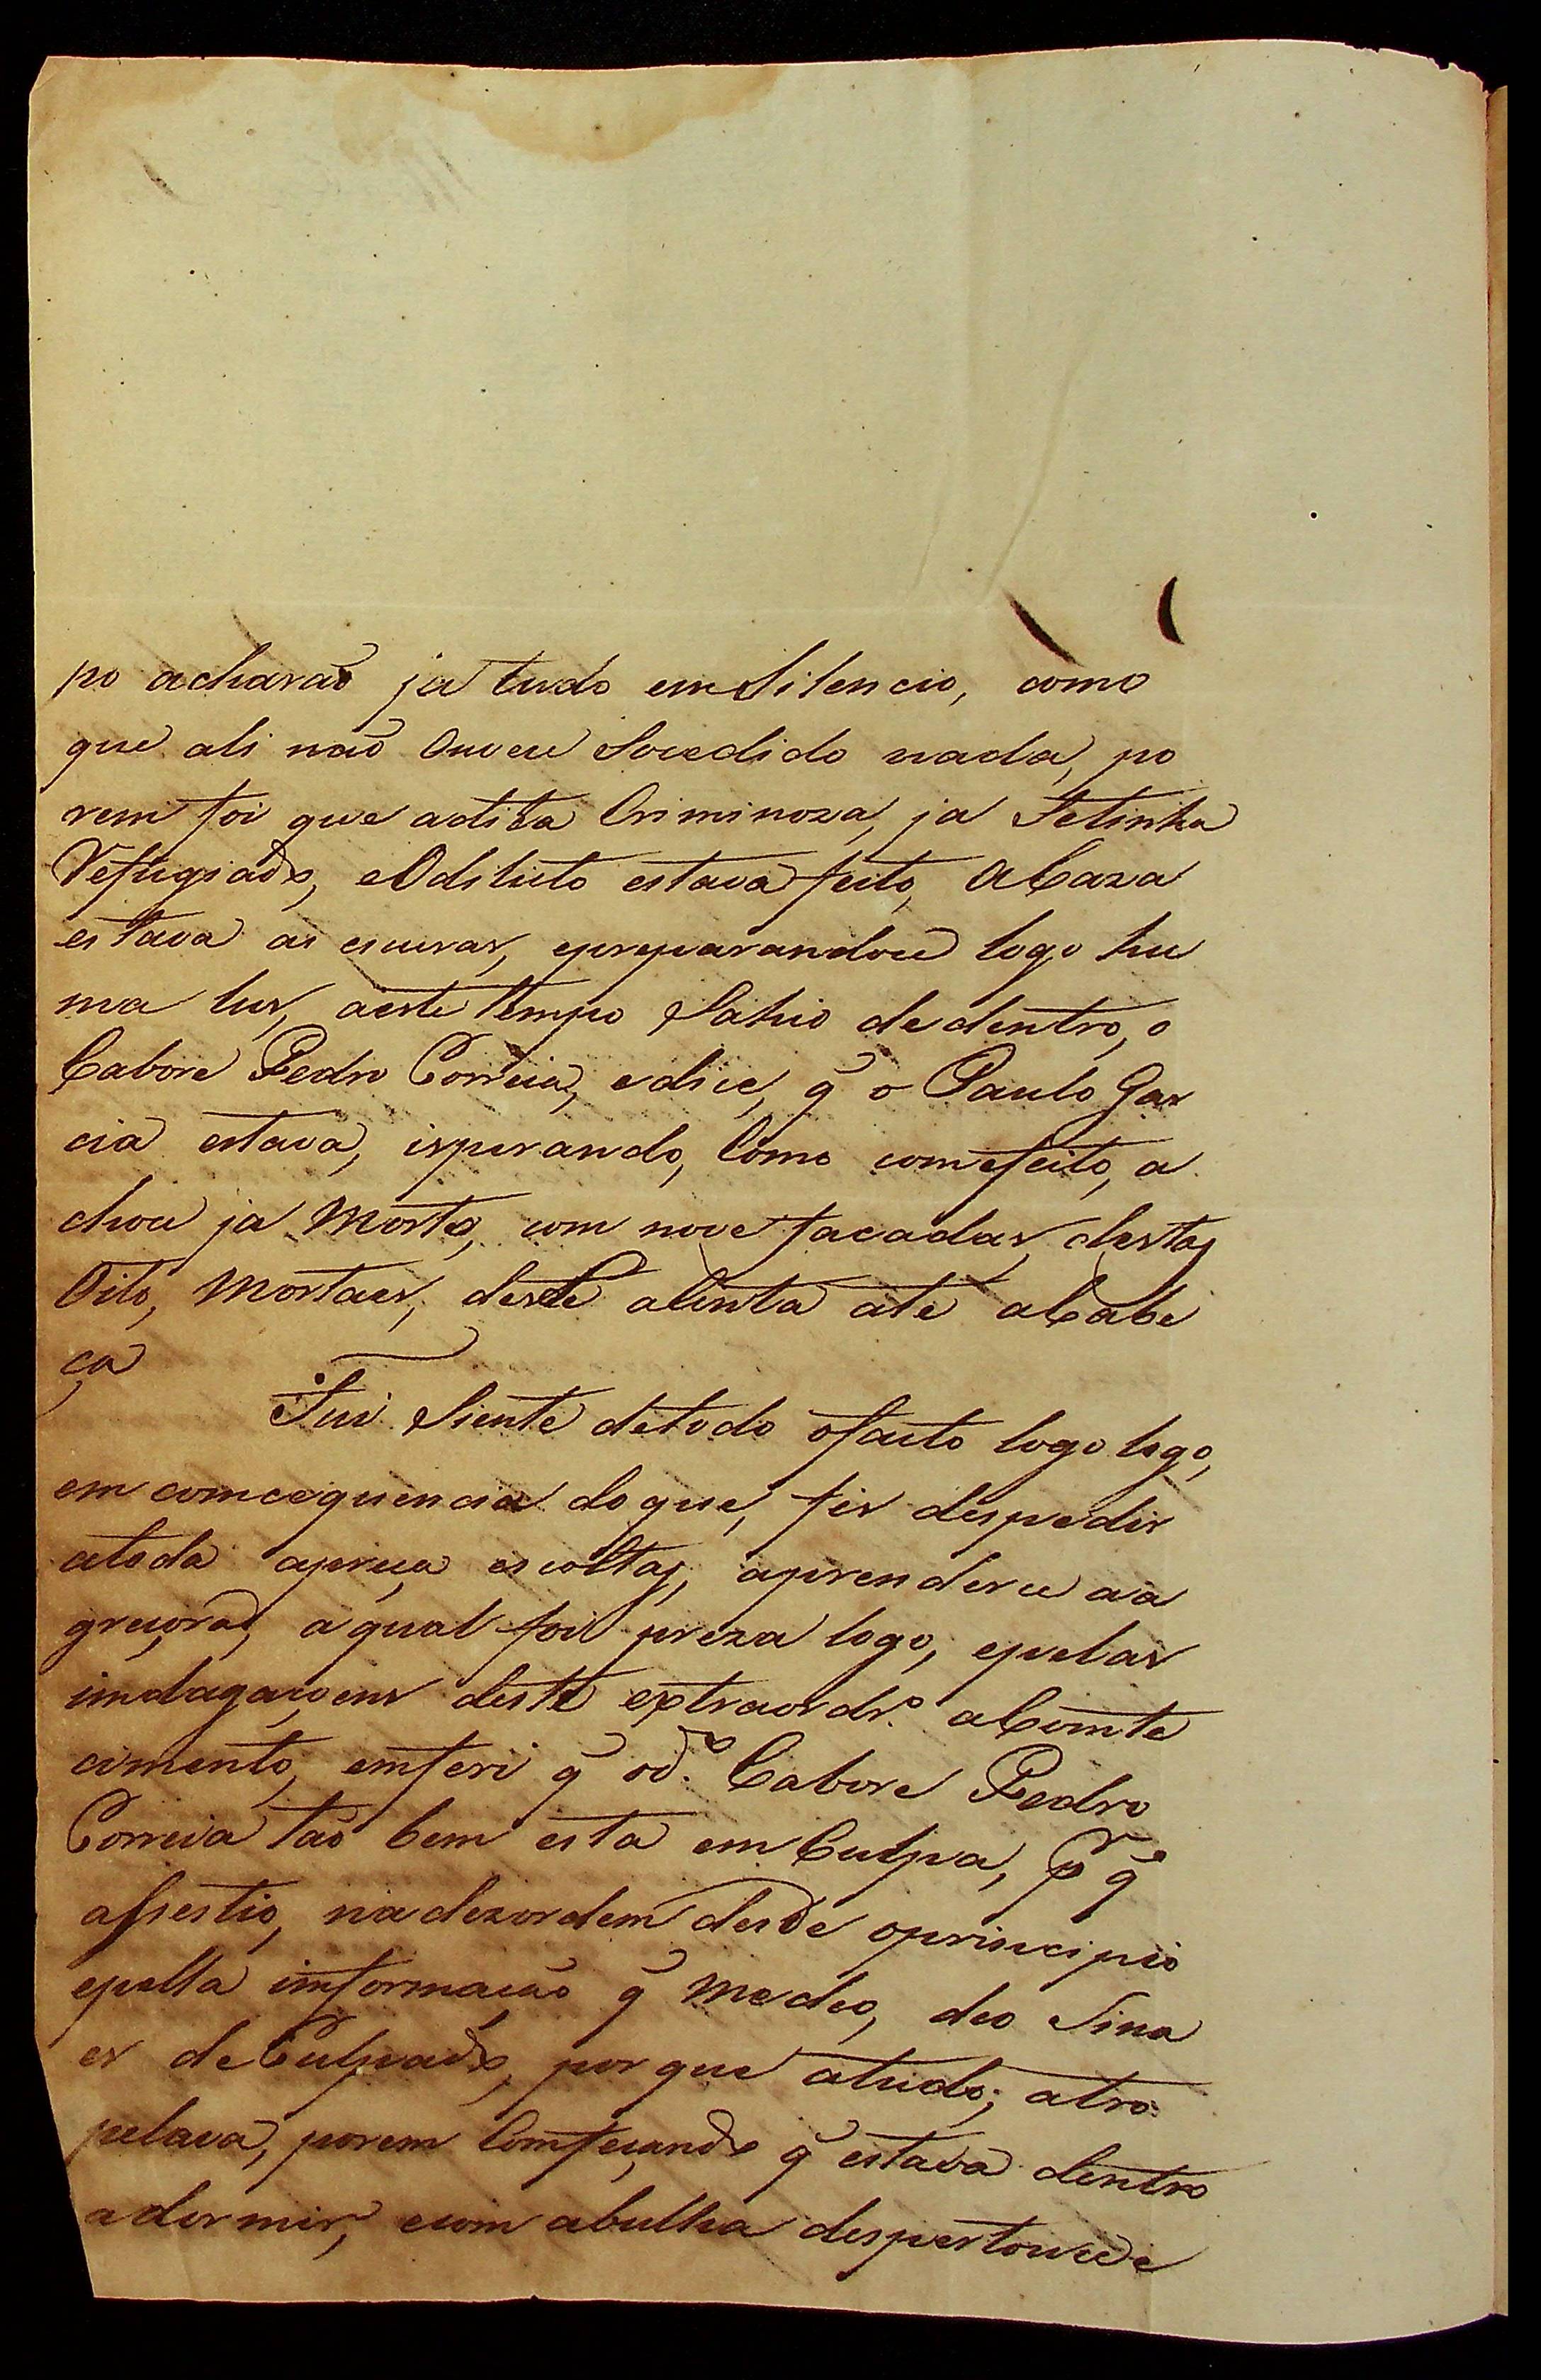 po acharaõ ja tudo em Silencio, como
que ali naõ Ouveu Socedido nada, po
rem foi que adita Criminoza, ja Setinha
Refugiado, eOdilicto estava feito, aCaza
estava as escuras, epreparandoce logo hu
ma lus, aeste tempo Sahio dedentro, o
Cabore Pedro Correia, edice, q̃ o Paulo Gar
cia estava, isperando, Como comefeito, a
chou ja Morto, com nove facadas, destas
Oito, Mortaes, desde aCinta até aCabe
ça
Fui Siente detodo ofacto logo logo,
em comcequencia do que, fis despedir
atoda apreça escoltas, aprenderce aa
greçora, aqual foi preza logo, epelas
indagaçoens deste extraordr.º aComte
cimento, emferi q̃ od.º Cabore Pedro
Correia taõ bem esta em Culpa, p q̃
assestio, nadezordem desde oprincipio
epella imformaçaõ q̃ Medeo, deo Sina
es deCulpado, por que atudo, atro
pelava, porem Comfeçando q̃ estava dentro
adormir, ecom abulha despertouce e